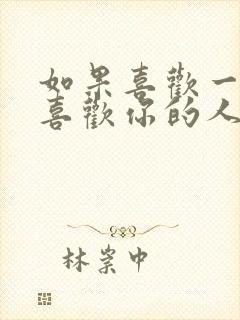 如果喜歡一
喜歡你的人
林崇中